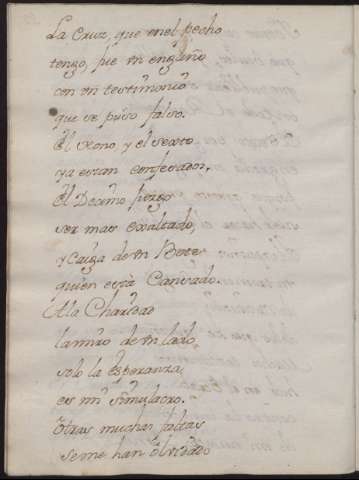 La Cruz, que en el pecho
tengo, fue un engaño
con un testimonio
que se puso falso.
El Nono, y el sexto
ya estan confesados,
El Decimo
ser mas exaltado,
y Caiga de un Bote
quien està Cansado.
A la Charidad
la miro de un lado,
solo la Esperanza
es mi simulacro.
Otras muchas faltas
se me han olvidado